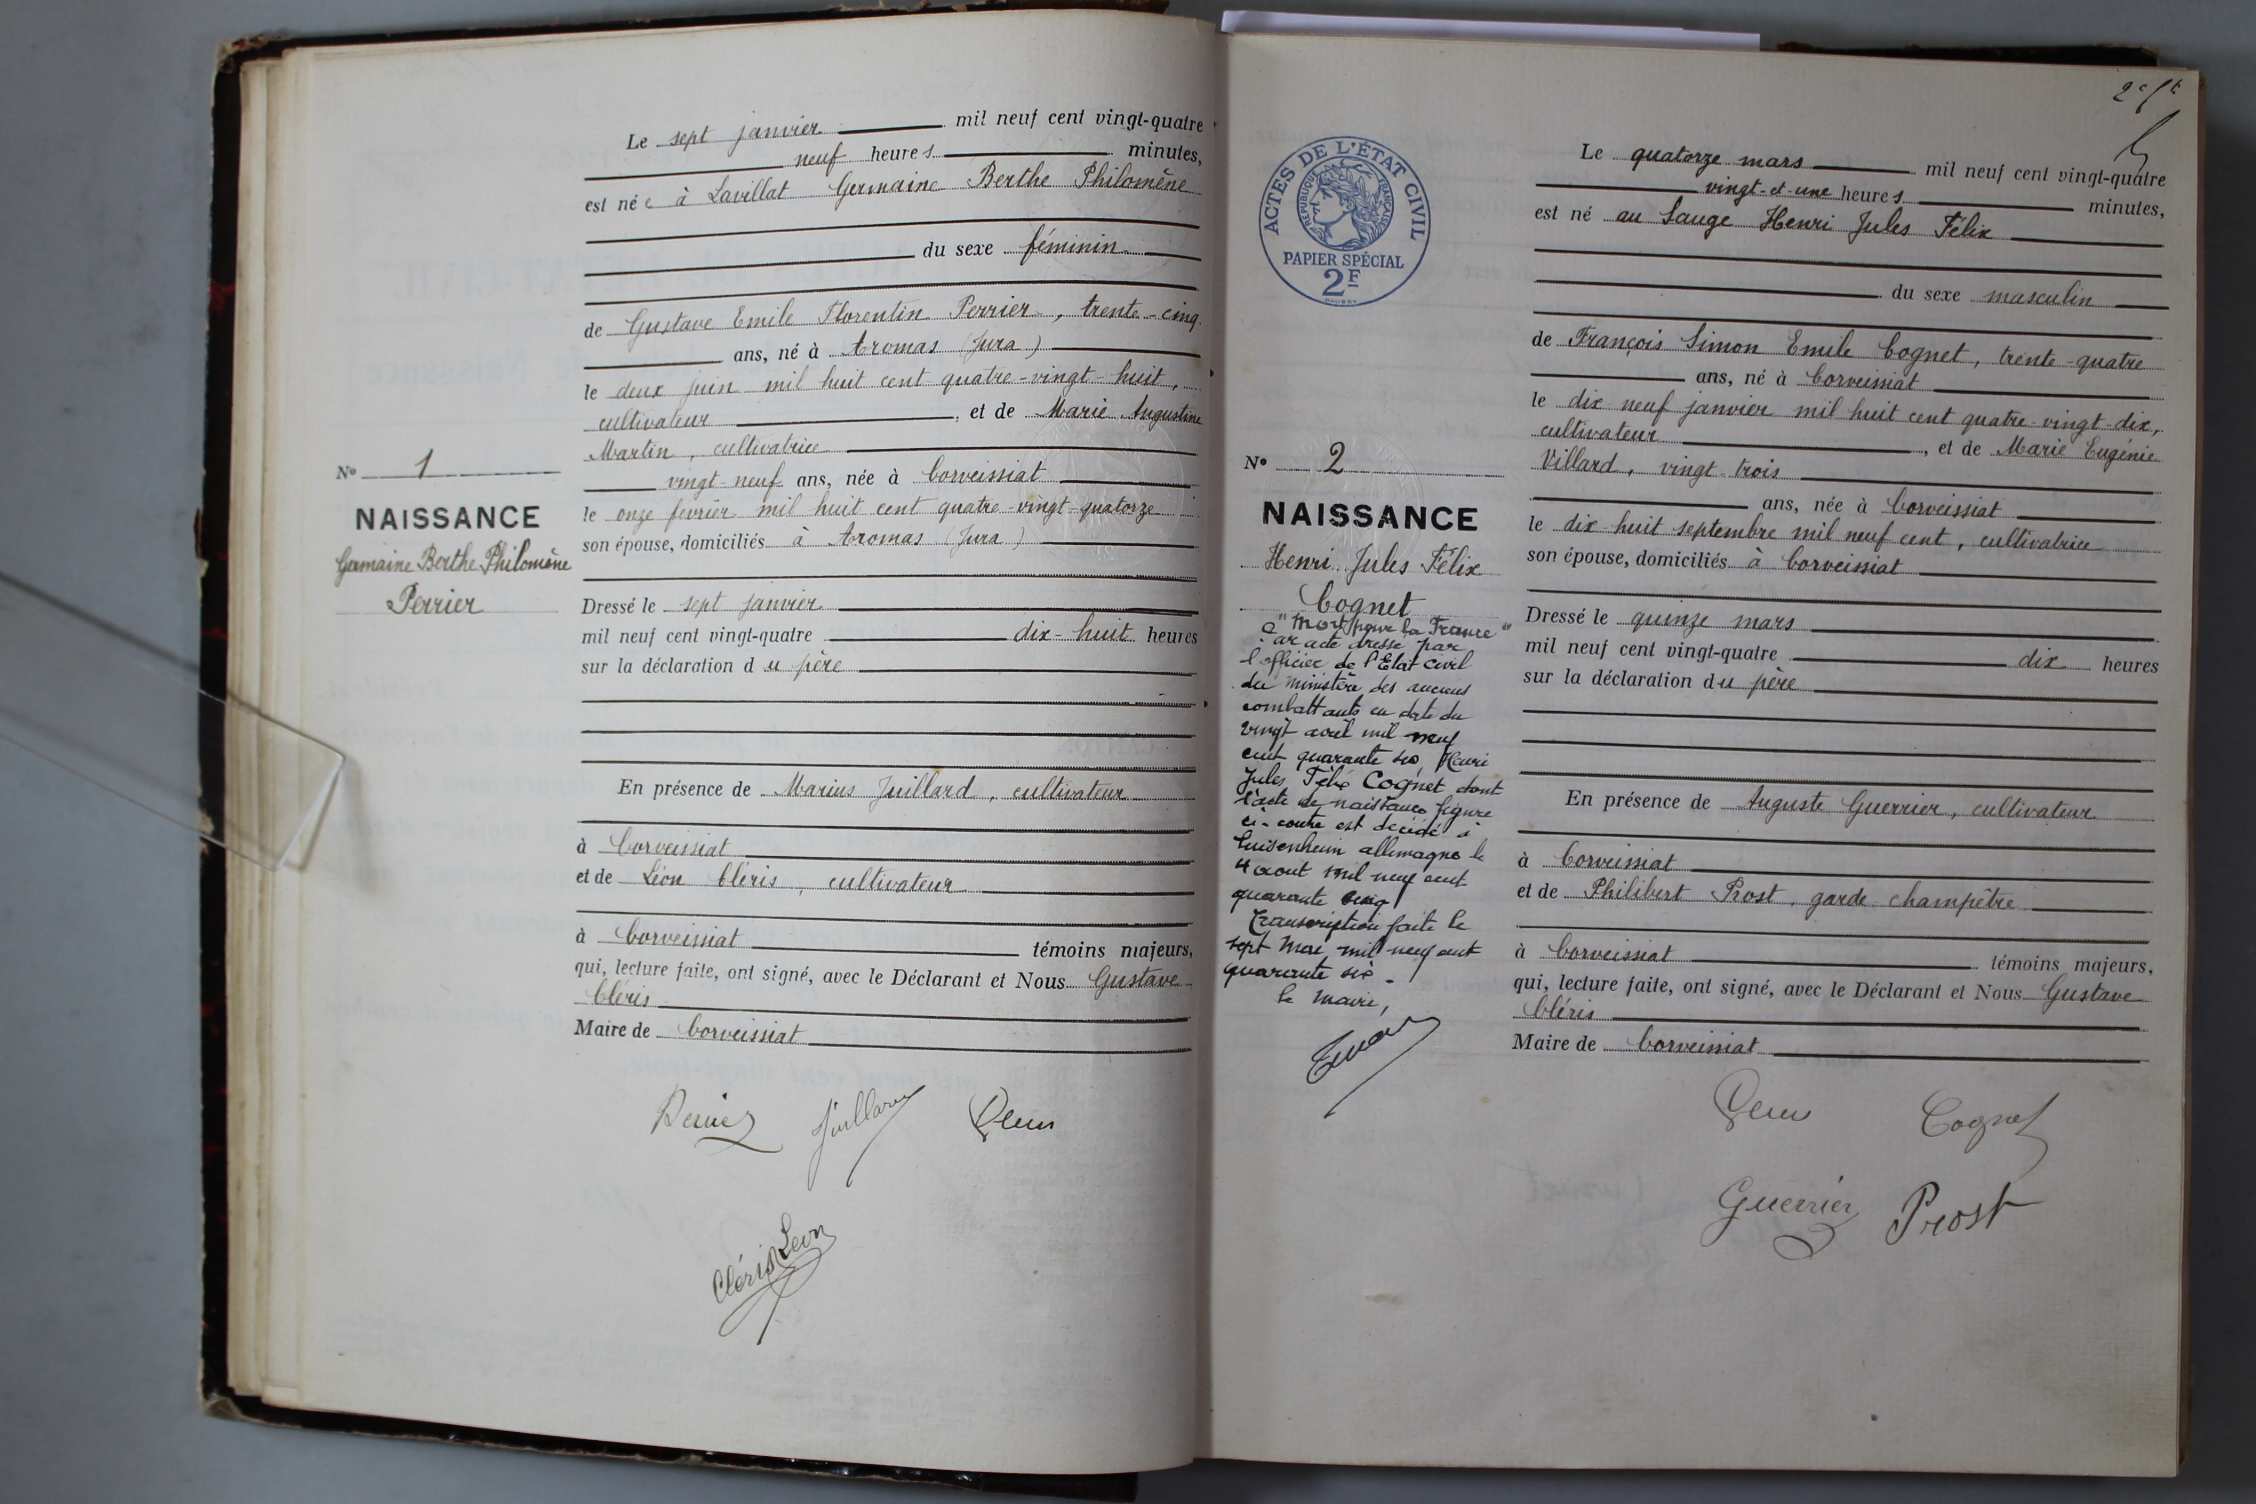 Le sept janvier mil neuf cent vingt-quatre
neuf heures minutes,
est née à Lavillat Germaine Berthe Philomène
du sexe féminin
de Gustave Emile Florentin Perrier, trente-cinq
ans, né à Aromas (Jura)
le deux juin mil huit cent quatre-vingt-huit,
cultivateur, et de Marie Augustine
Martin, cultivatrice
vingt-neuf ans, née à Corveissiat
le onze février mil huit cent quatre-vingt-quatorze
son épouse, domiciliés à Aromas (Jura)
Dressé le sept janvier
mil neuf cent vingt-quatre dix-huit heures
sur la déclaration du père
En présence de Marius Juillard, cultivateur
à Corveissiat
et de Léon Cléris, cultivateur
à Corveissiat témoins majeurs,
qui, lecture faite, ont signé, avec le Déclarant et Nous Gustave
Cléris
Maire de Corveissiat
Nº 1
NAISSANCE
Germaine Berthe Philomène
Perrier
Juillard
Cléris Léon
ACTES DE L'ÉTAT CIVIL
RÉPUBLIQUE FRANÇAISE
PAPIER SPÉCIAL
2F
Nº 2
NAISSANCE
Henri Jules Félix
Cognet
"Mort pour la France"
acte dressé par
l'officier de l'Etat civil
du ministère des anciens
combattants en date du
vingt avril mil neuf
cent quarante six, Henri
Jules Félix Cognet dont
l'acte de naissance figure
ci-contre est décédé à
allemagne le
4 aout mil neuf cent
quarante cinq
Transcription faite le
sept Mai mil neuf cent
quarante six -
le Maire,
Le quatorze mars mil neuf cent vingt-quatre
vingt-et-une heures minutes,
est né au Sauge Henri Jules Félix
du sexe masculin
de François Simon Emile Cognet, trente-quatre
ans, né à Corveissiat
le dix-neuf janvier mil huit cent quatre-vingt-dix,
cultivateur, et de Marie Eugénie
Villard, vingt-trois
ans, née à Corveissiat
le dix-huit septembre mil neuf cent, cultivatrice
son épouse, domiciliés à Corveissiat
Dressé le quinze mars
mil neuf cent vingt-quatre dix heures
sur la déclaration du père
En présence de Auguste Guerrier, cultivateur
à Corveissiat
et de Philibert Prost, garde-champêtre
à Corveissiat témoins majeurs,
qui, lecture faite, ont signé, avec le Déclarant et Nous Gustave
Cléris
Maire de Corveissiat
Cognet
Guerrier Prost